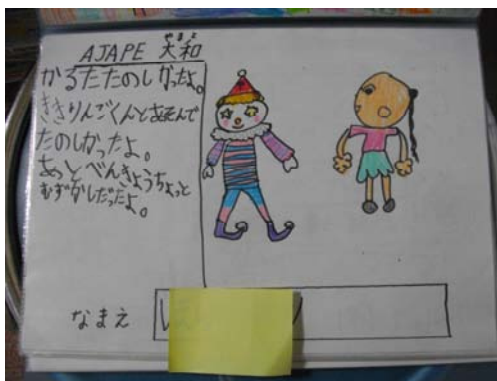 AJAPE 大和
やまと
かるたたのしかったよ。
ききりんごくんとあそんで
たのしかったよ。
あっとべんきょうちょっと
むずかしだったよ。
なまえ